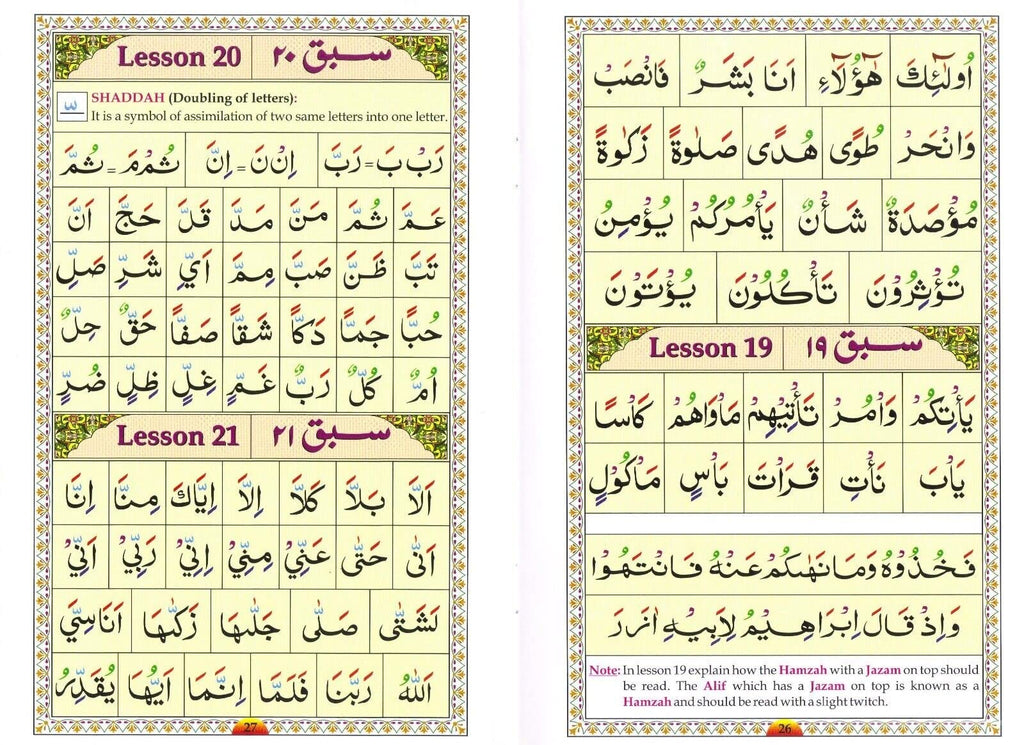 اُولٰٓئِكَ هٰٓؤُلَآءِ اَنَا بَشَرٌ فَانْصَبْ
وَانْحَرْ طُوًى هُدًى صَلٰوةً زَكٰوةً
مُؤْصَدَةٌ شَأْنٌ يَأْمُرُكُمْ يُؤْمِنُ
تُؤْثِرُوْنَ تَأْكُلُوْنَ يُؤْتَوْنَ
Lesson 19 سبق ۱۹
يَأْتِكُمْ وَأْمُرْ تَأْتِيْهِمْ مَأْوَاهُمْ كَأْسًا
يَأْبَ نَأْتِ قَرَأْتَ بَأْسٍ مَأْكُوْلٍ
فَخُذُوْهُ وَمَا نَهٰىكُمْ عَنْهُ فَانْتَهُوْا
وَاِذْ قَالَ اِبْرَاهِيْمُ لِاَبِيْهِ اٰزَرَ
Note: In lesson 19 explain how the Hamzah with a Jazam on top should
be read. The Alif which has a Jazam on top is known as a
Hamzah and should be read with a slight twitch.
26
Lesson 20 سبق ۲۰
ّ SHADDAH (Doubling of letters):
It is a symbol of assimilation of two same letters into one letter.
رَبْ بَ = رَبَّ اِنْ نَ = اِنَّ ثُمْ مَ = ثُمَّ
عَمَّ ثُمَّ مَنَّ مَدَّ قَلَّ حَجَّ اَنَّ
تَبَّ ظَنَّ صَبَّ مِمَّ اَيِّ شَرِّ صَلِّ
حُبًّا جَمًّا دَكًّا شَقًّا صَفًّا حَقٌّ حِلٌّ
اُمٌّ كُلٌّ رَبٌّ غَمٍّ غِلٍّ ظِلٍّ ضُرٍّ
Lesson 21 سبق ۲۱
اَلَّا بَلَّا كَلَّا اِلَّا اِيَّاكَ مِنَّا اِنَّا
اَنّٰى حَتّٰى عَنِّيْ مِنِّيْ اِنِّيْ رَبِّيْ اَنِّيْ
لَشَتّٰى صَلّٰى جَلّٰىهَا زَكّٰىهَا اَنَاسِيَّ
اَللّٰهُ رَبَّنَا فَلَمَّا اِنَّمَا اَيُّهَا يُقَدِّرُ
27